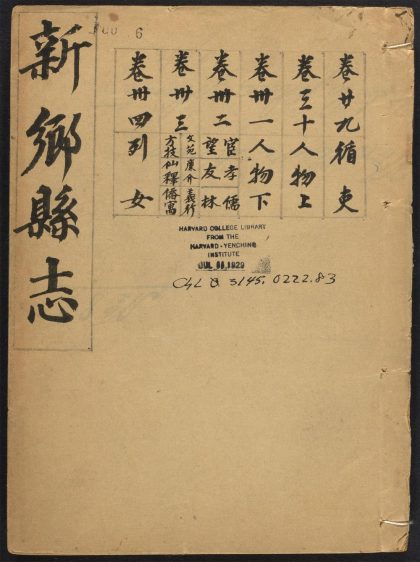 新鄉縣志
6
卷廿九循吏
卷三十人物上
卷卅一人物下
卷卅二
儒林
孝友
宦望
卷卅三
文苑廉介義行
方技仙釋僑寓
卷卅四列女
HARVARD COLLEGE LIBRARY
FROM THE
HARVARD-YENCHING
INSTITUTE
1929
3145. 0222.83